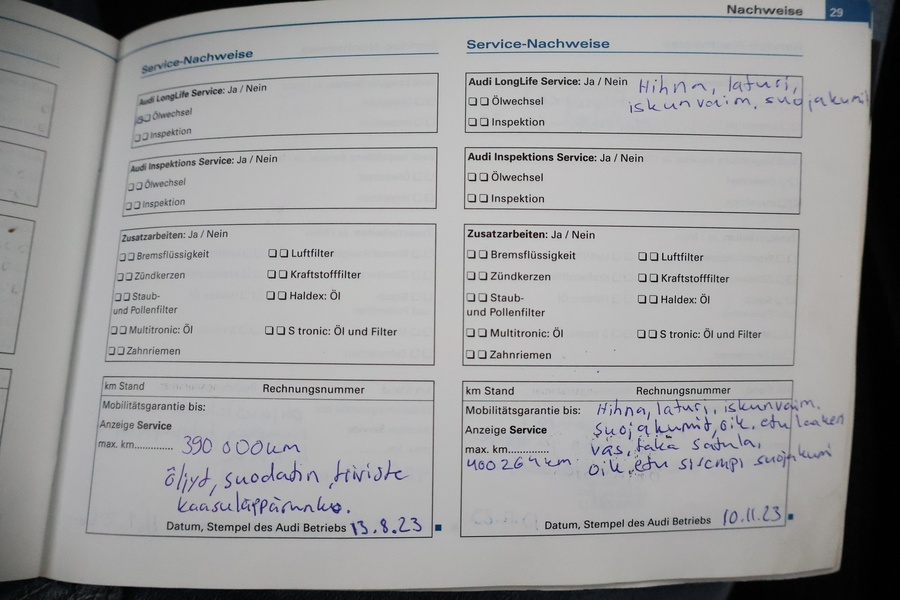 Nachweise 29
Service-Nachweise
Audi LongLife Service: Ja / Nein
Ölwechsel
Inspektion
Audi Inspektions Service: Ja / Nein
Ölwechsel
Inspektion
Zusatzarbeiten: Ja / Nein
Bremsflüssigkeit Luftfilter
Zündkerzen Kraftstofffilter
Staub- Haldex: Öl
und Pollenfilter
Multitronic: Öl S tronic: Öl und Filter
Zahnriemen
km Stand Rechnungsnummer
Mobilitätsgarantie bis:
Anzeige Service
max. km.............. 390 000km
öljyt, suodatin, tiiviste
kaasuläppärunko.
Datum, Stempel des Audi Betriebs 13.8.23
Service-Nachweise
Audi LongLife Service: Ja / Nein Hihna, laturi,
Ölwechsel iskunvaim, suojakumit
Inspektion
Audi Inspektions Service: Ja / Nein
Ölwechsel
Inspektion
Zusatzarbeiten: Ja / Nein
Bremsflüssigkeit Luftfilter
Zündkerzen Kraftstofffilter
Staub- Haldex: Öl
und Pollenfilter
Multitronic: Öl S tronic: Öl und Filter
Zahnriemen
km Stand Rechnungsnummer
Mobilitätsgarantie bis: Hihna, laturi, iskunvaim.
Anzeige Service suojakumit, oik. etu laakeri
max. km.............. vas, taka satula,
400264km oik, etu sisempi suojakumi
Datum, Stempel des Audi Betriebs 10.11.23